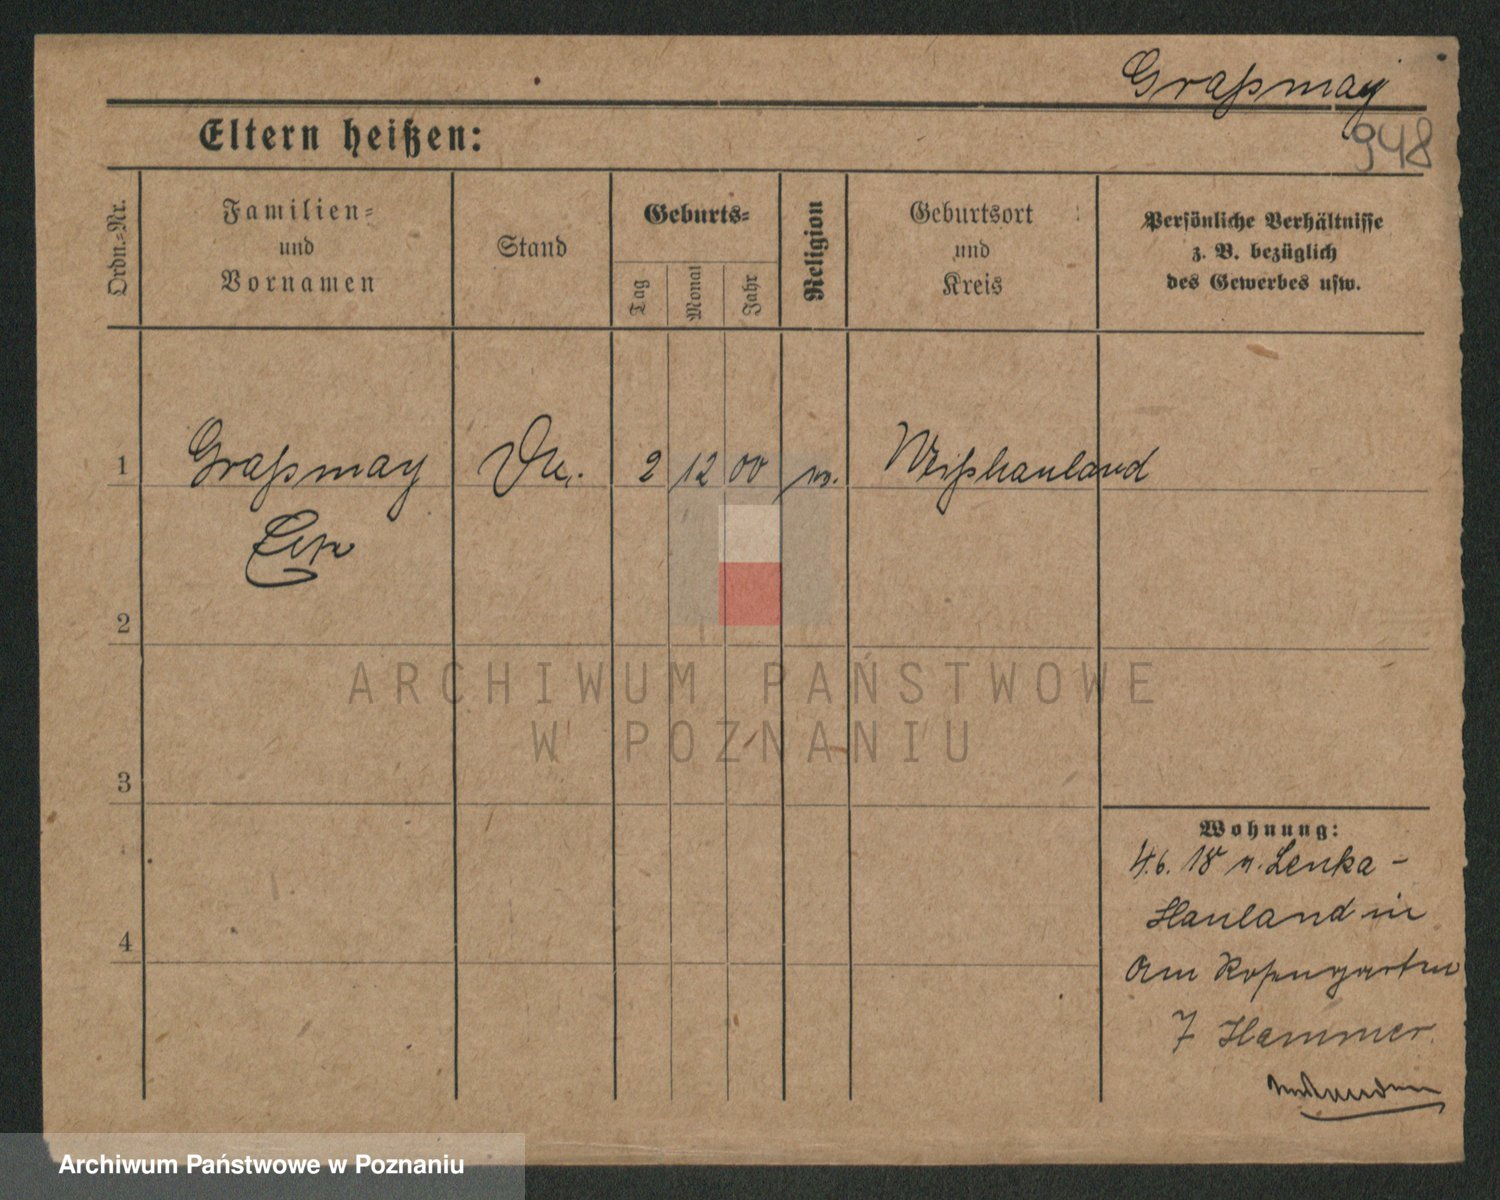 Graßmay
948
Eltern heißen:
Ordn.-Nr.
Familien-
und
Vornamen
Stand
Geburts-
Tag
Monat
Jahr
Religion
Geburtsort
und
Kreis
Persönliche Verhältnisse
z. B. bezüglich
des Gewerbes usw.
1 Graßmay 2 12 00
2
3
4
ARCHIWUM PAŃSTWOWE
W POZNANIU
Wohnung:
4.6. 18 v. Lenka-
Hauland in
Am Rosengarten
7 Hammer.
Archiwum Państwowe w Poznaniu